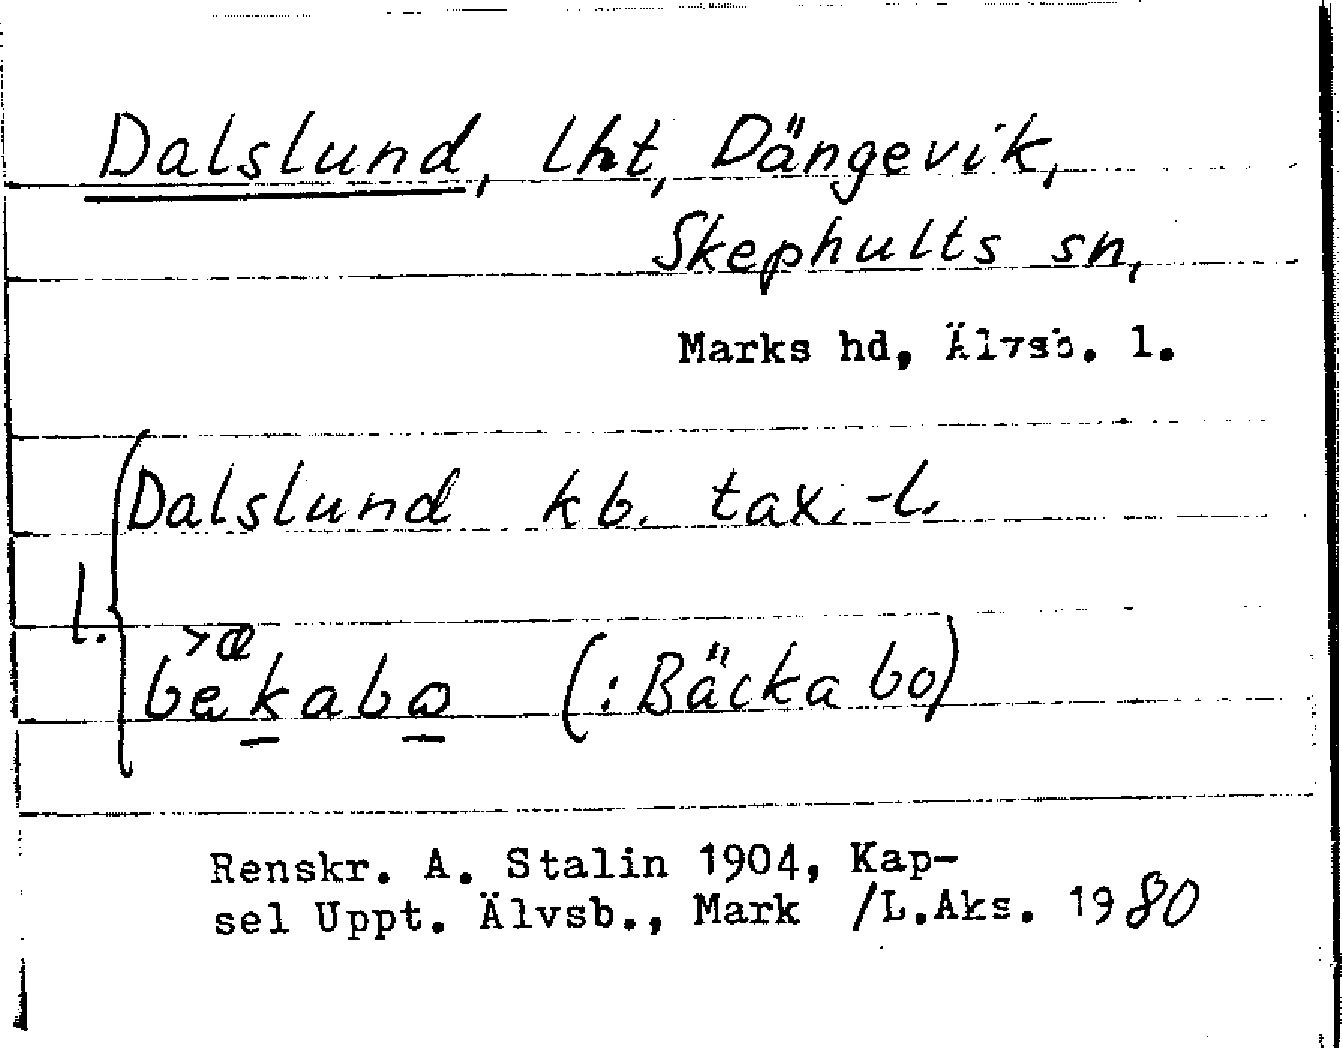 Dalslund, lht, Dängevik,
Skephults sn,
Marks hd, Älvsb. l.
Dalslund kb. tax.-l.
l.
>æ
bekabo (:Bäckabo)
Renskr. A. Stalin 1904, Kap-
sel Uppt. Älvsb., Mark /L.Aks. 1980